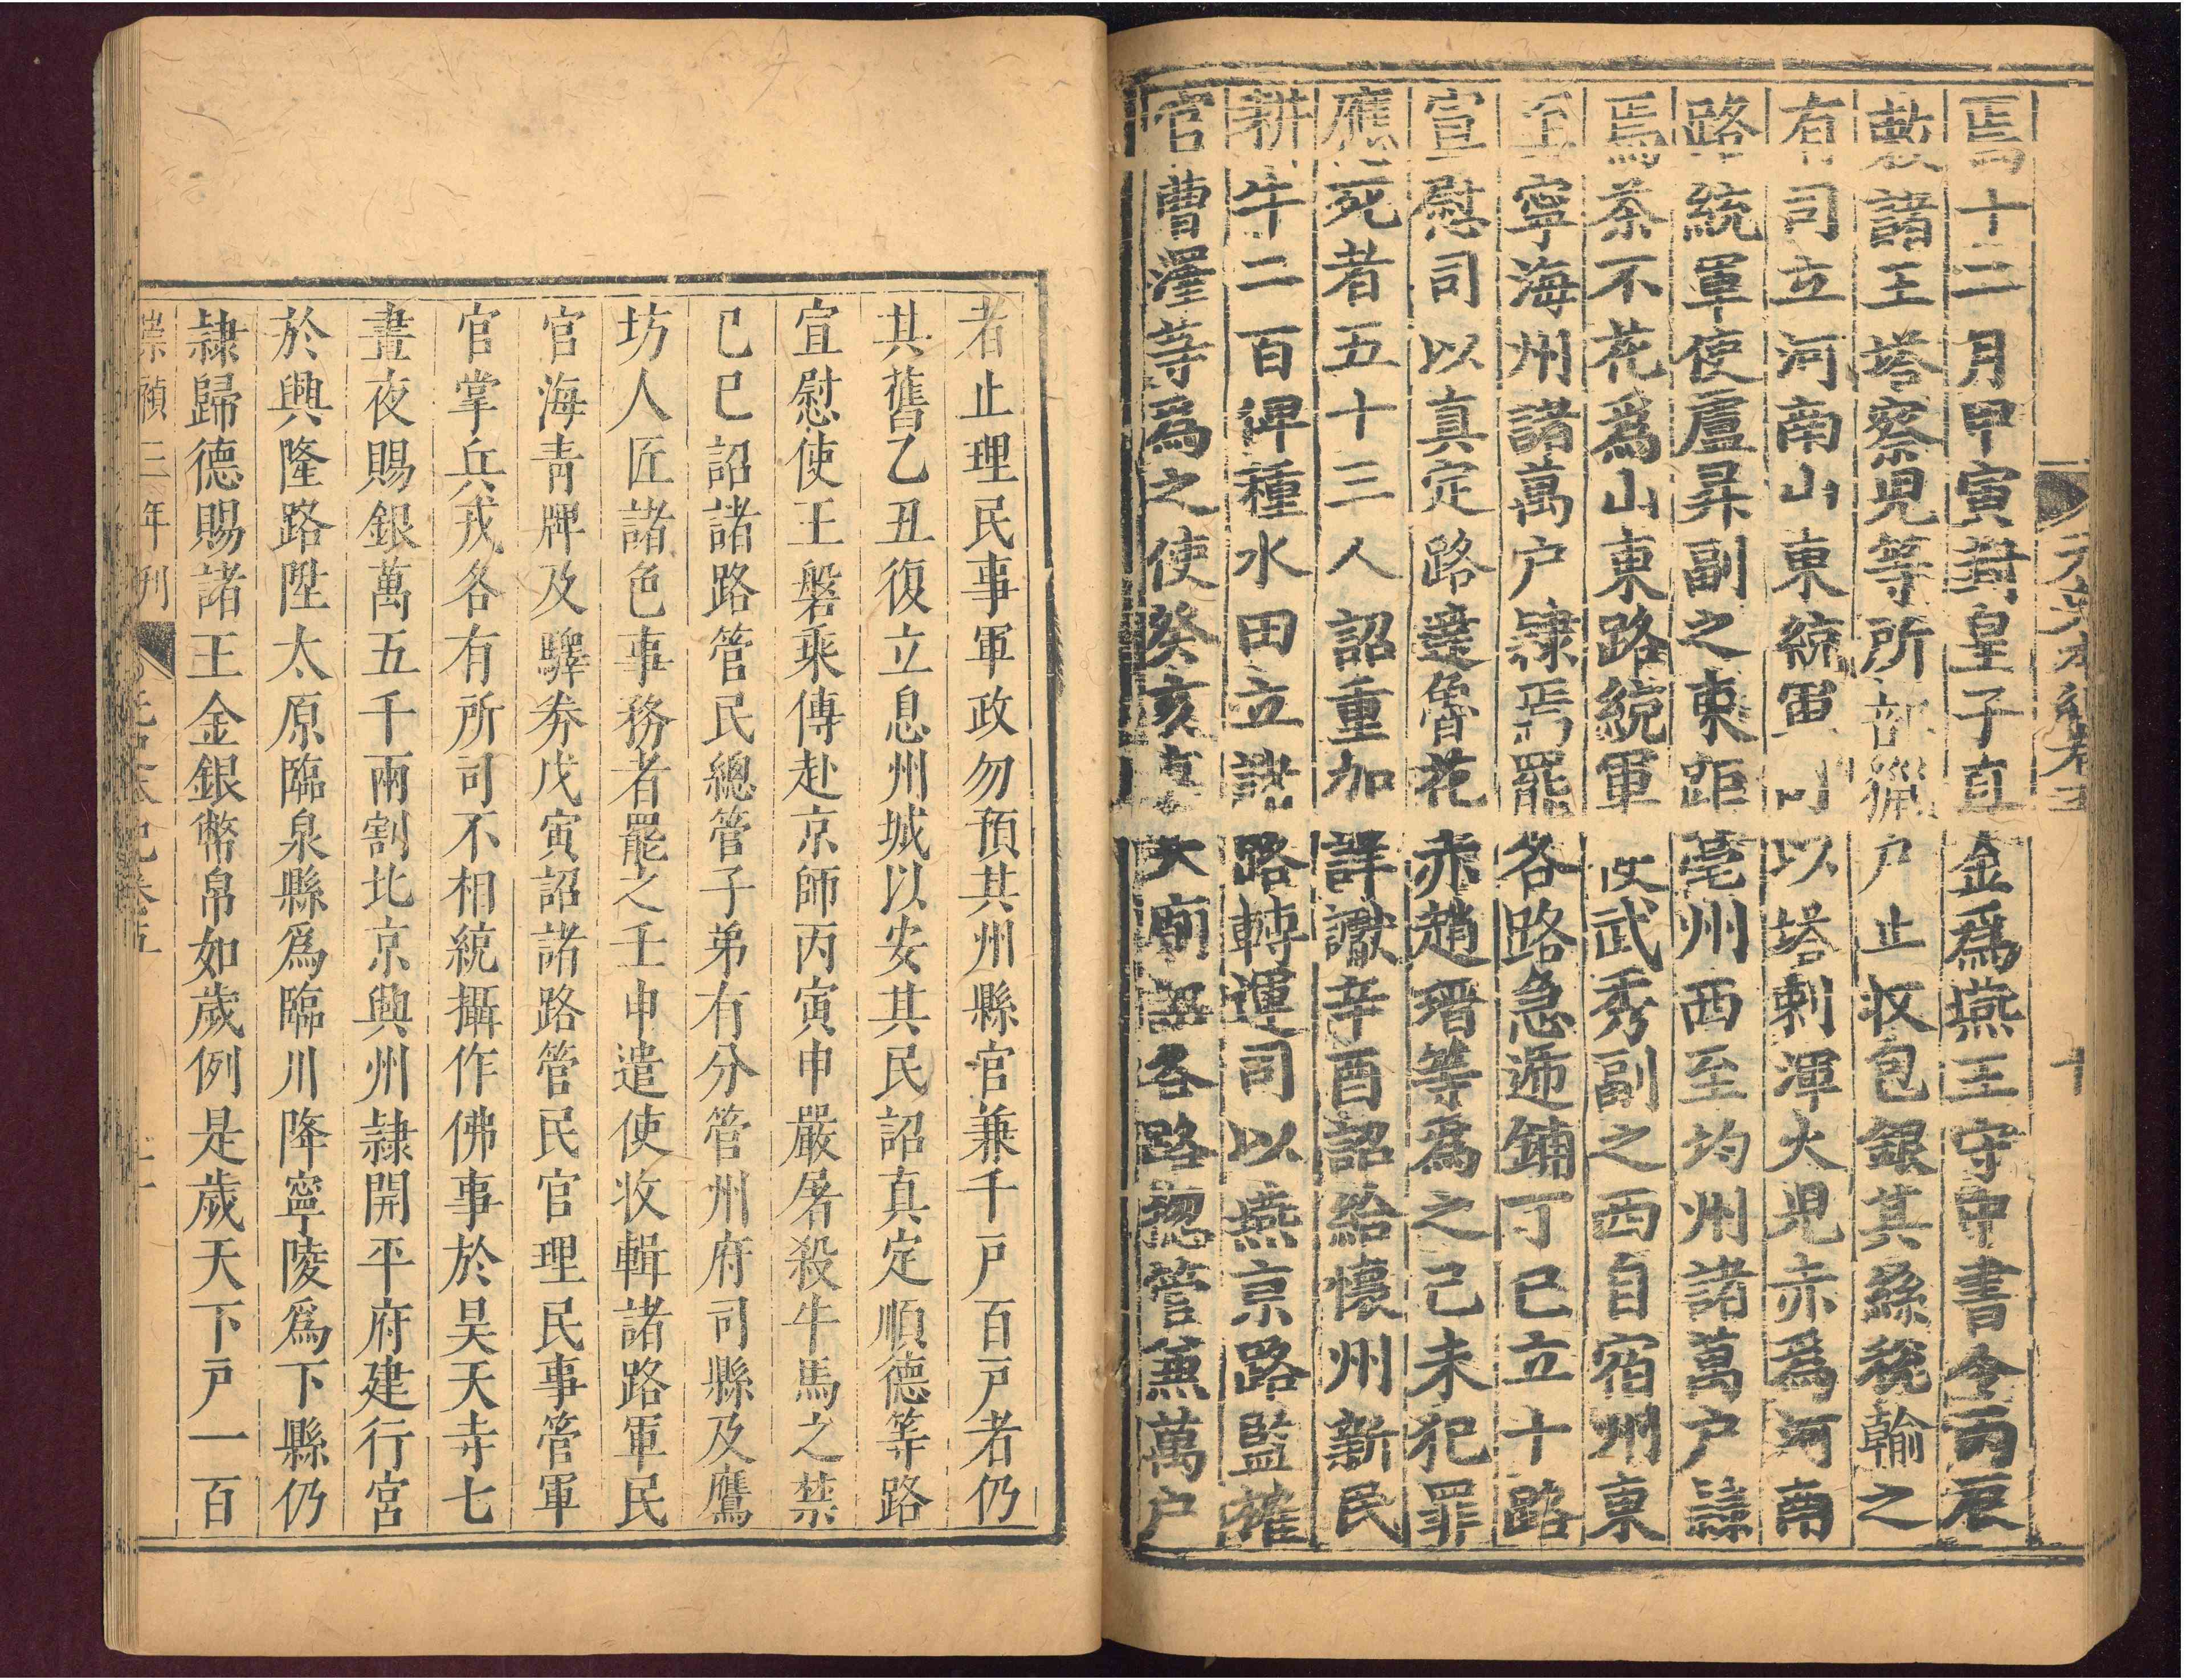 元史本紀卷五
十
焉十二月甲寅封皇子真金爲燕王守中書令丙辰
敕諸王塔察兒等所部獵户止收包銀其絲稅輸之
有司立河南山東統軍司以塔剌渾火兒赤爲河南
路統軍使盧昇副之東距亳州西至均州諸萬户隷
焉茶不花爲山東路統軍使武秀副之西自宿州東
至寧海州諸萬户隷焉罷各路急遞鋪丁巳立十路
宣慰司以真定路達魯花赤趙瑨等爲之己未犯罪
應死者五十三人詔重加詳讞辛酉詔給懷州新民
耕牛二百俾種水田立諸路轉運司以燕京路監榷
官曹澤等爲之使癸亥享太廟詔各路總管兼萬户
者止理民事軍政勿預其州縣官兼千戸百戸者仍
其舊乙丑復立息州城以安其民詔真定順德等路
宣慰使王磐乘傳赴京師丙寅申嚴屠殺牛馬之禁
己巳詔諸路管民總管子弟有分管州府司縣及鷹
坊人匠諸色事務者罷之壬申遣使收輯諸路軍民
官海青牌及驛券戊寅詔諸路管民官理民事管軍
官掌兵戎各有所司不相統攝作佛事於昊天寺七
晝夜賜銀萬五千兩割北京興州隷開平府建行宮
於興隆路陞太原臨泉縣爲臨川降寧陵爲下縣仍
隷歸德賜諸王金銀幣帛如歲例是歲天下戸一百
崇禎三年刊
元史本紀卷五
十一